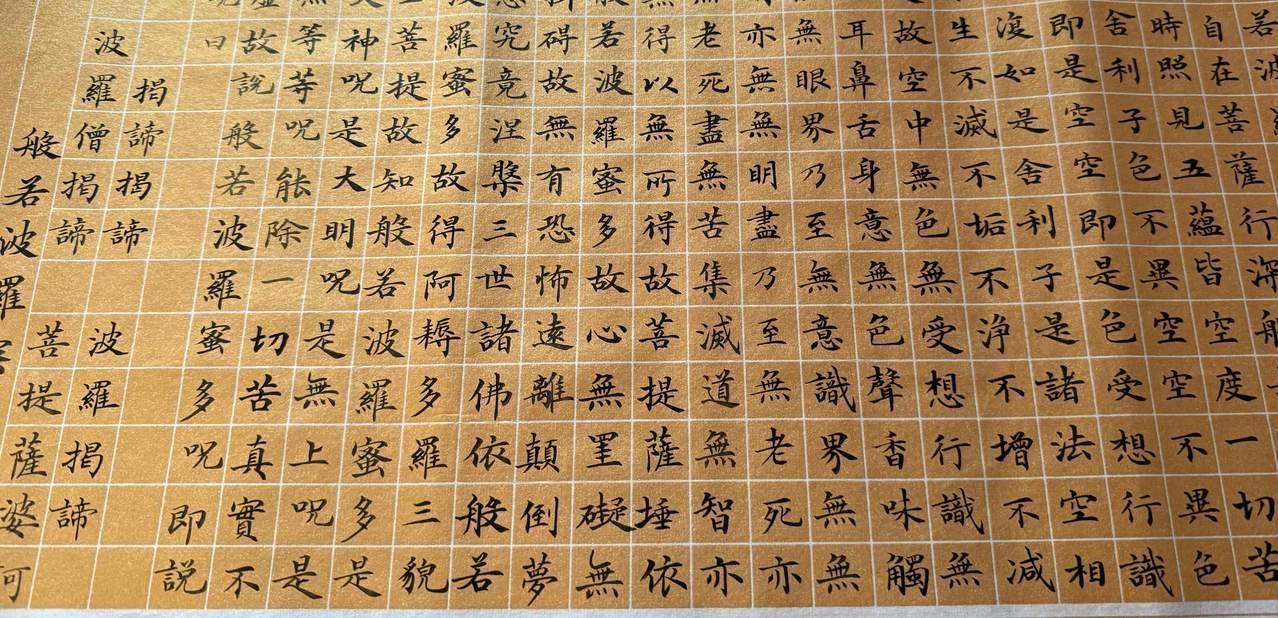 若波
自在菩薩行深般
時照見五蘊皆空度一切苦
舍利子色不異空空不異色
即是空空即是色受想行識
復如是舍利子是諸法空相
生不滅不垢不浄不增不減
故空中無色無受想行識無
耳鼻舌身意無色聲香味觸
無眼界乃至無意識界無無
亦無無明盡乃至無老死亦
老死盡無苦集滅道無智亦
得以無所得故菩提薩埵依
若波羅蜜多故心無罣礙無
碍故無有恐怖遠離顛倒夢
究竟涅槃三世諸佛依般若
羅蜜多故得阿耨多羅三貌
菩提故知般若波羅蜜多是
神咒是大明咒是無上咒是
等等咒能除一切苦真實不
故説般若波羅蜜多咒即説
曰
揭諦揭諦 波羅揭諦
波羅僧揭諦 菩提薩婆訶
般若波羅